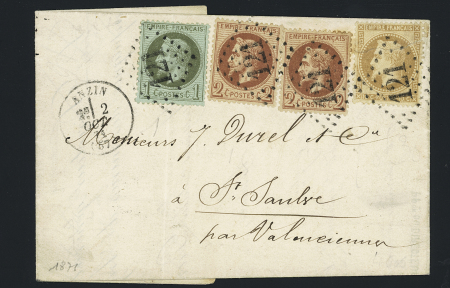 EMPIRE FRANÇAIS EMPIRE FRANÇAIS EMPIRE FRANÇAIS EMPIRE FRANÇAIS
121 121 121 121
1 POSTES 1 2 POSTES 2 2 POSTES 2
ANZIN
2
OCT
(57)
Messieurs J. Durel & Cie
à St. Saulve
par Valenciennes
1871